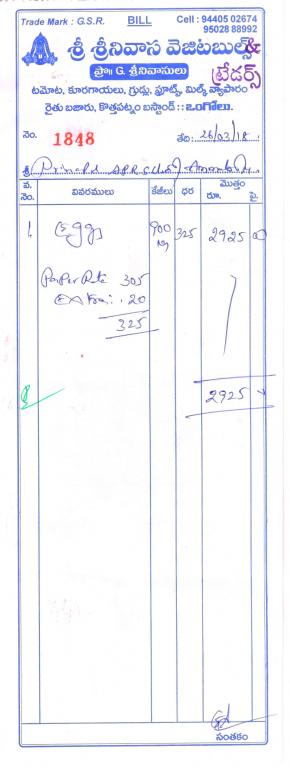 Trade Mark : G.S.R. BILL Cell : 94405 02674
95028 88992
శ్రీ శ్రీనివాస వెజిటబుల్స్ &
ప్రొ॥ G. శ్రీనివాసులు ట్రేడర్స్
టమోట, కూరగాయలు, గ్రుడ్లు, ఫ్రూట్స్, మిల్క్ వ్యాపారం
రైతు బజారు, కొత్తపట్నం బస్టాండ్ :: ఒంగోలు.
నెం. 1848 తేది: 26/03/18.
శ్రీ
వ. నెం. వివరములు కేజీలు ధర మొత్తం రూ. పై.
1. Eggs 900 325 2925 00
Paper Rate 305
Extra: 20
325
2925
సంతకం